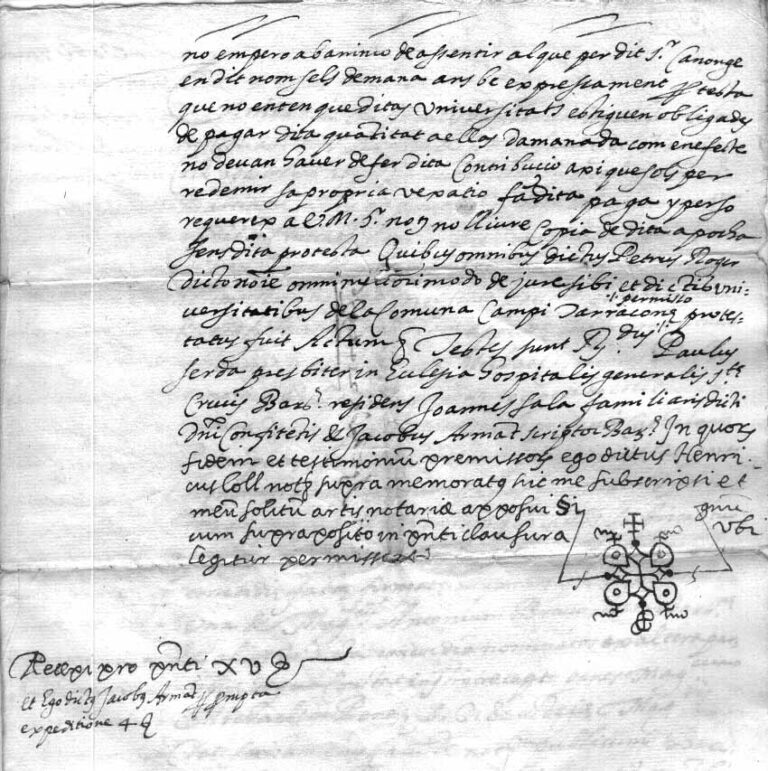 no empero a b animo de assentir al que per dit Sr. Canonge
en dit nom sels demana ans be expressament protesta
que no enten que ditas Universitats estiguen obligades
de pagar dita quantitat a ellas damanada com en efecte
no devan haver de fer dita Contribucio axi que sols per
redemir sa propria vexatio fa dita paga y perso
requerex a V. M. Sr. not no lliure Copia de dita apocha
sens dita protesta Quibus omnibus dictus Petrus Roger
dicto noīe omni meliori modo de jure sibi et dictis Uni-
versitatibus de la Comuna Campi Tarracone protes-
permisso
tatus fuit Actum Testes sunt Rdus Paulus
serda presbiter in Eclesia Hospitalis generalis ste
Crucis Barne residens Joannes sala familiaris dicti
Dni Confitentis & Jacobus Armat scriptor Barne In quorum
fidem et testimonium premissorum ego dictus Henri-
cus Coll notus supra memoratus hic me subscripsi et
meū solitū artis notariæ apposui Si gnū
cum supraposito in pnti clausura ubi
legitur permisso
Recepi pro pnti XV
et Ego dictus Jacobus Armat pro scripta
expeditione 4